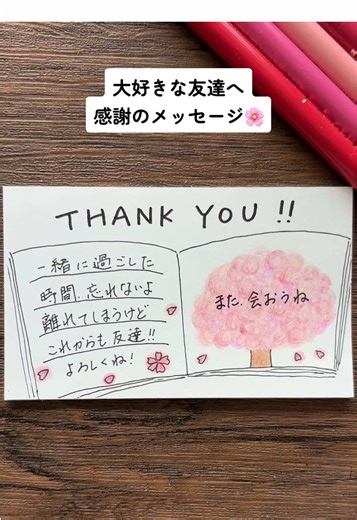 大好きな友達へ
感謝のメッセージ🌸
THANK YOU !!
一緒に過ごした
時間、忘れないよ
離れてしまうけど
これからも友達!!
よろしくね!
また、会おうね